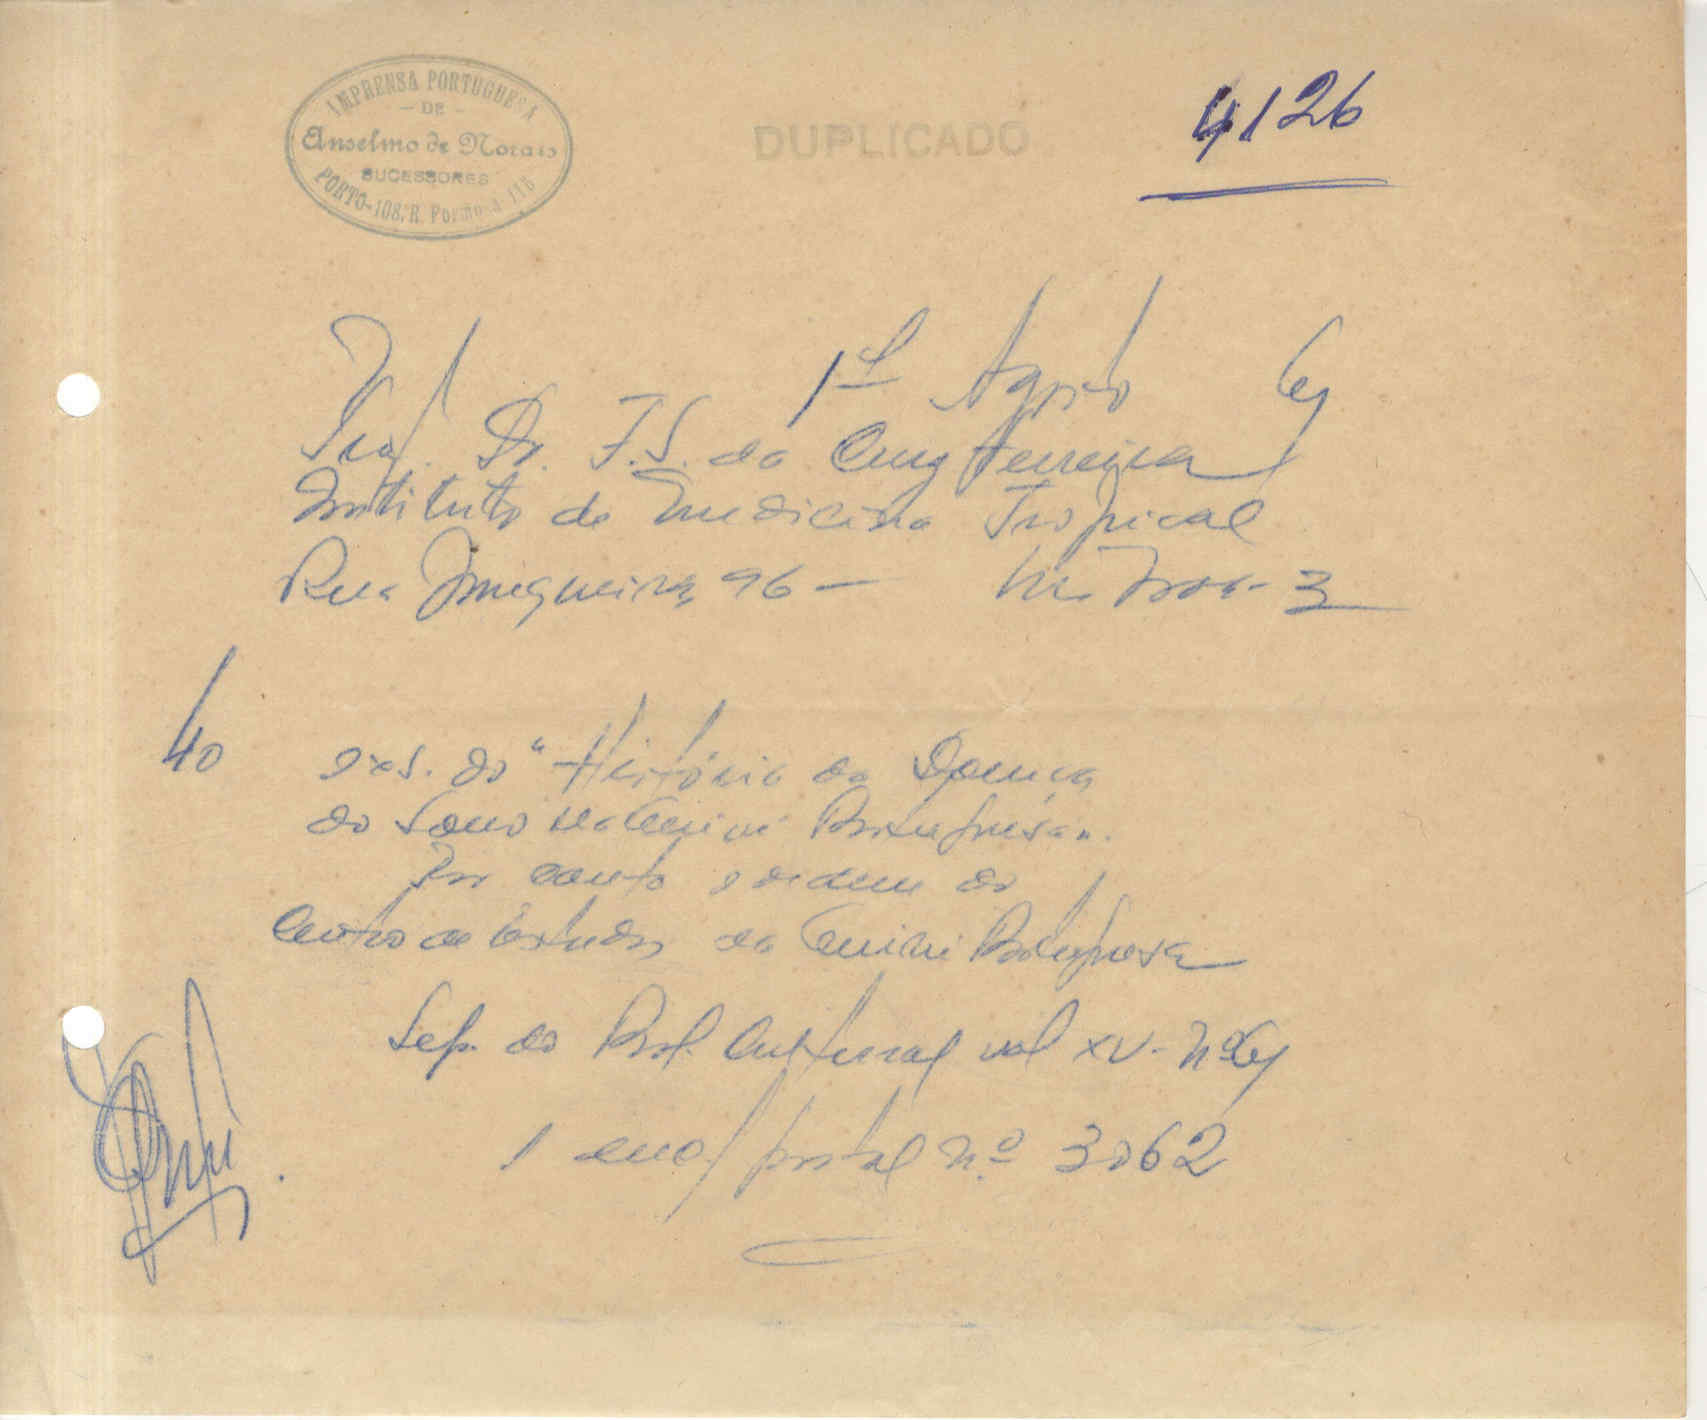 IMPRENSA PORTUGUESA
— DE —
Anselmo de Morais
SUCESSORES
PORTO-108, R. Formosa 116
DUPLICADO
4126
1º Agosto 61
Prof. Dr. F. S. da Cruz Ferreira
Instituto de Medicina Tropical
Rua Junqueira, 96 — Lisboa - 3
40 exs. do "História da Doença
do Sono na Guiné Portuguesa".
Por conta e ordem do
Centro de Estudos da Guiné Portuguesa
Sep. do Bol. Cultural vol XV - Nº
1 enc. postal nº 3062